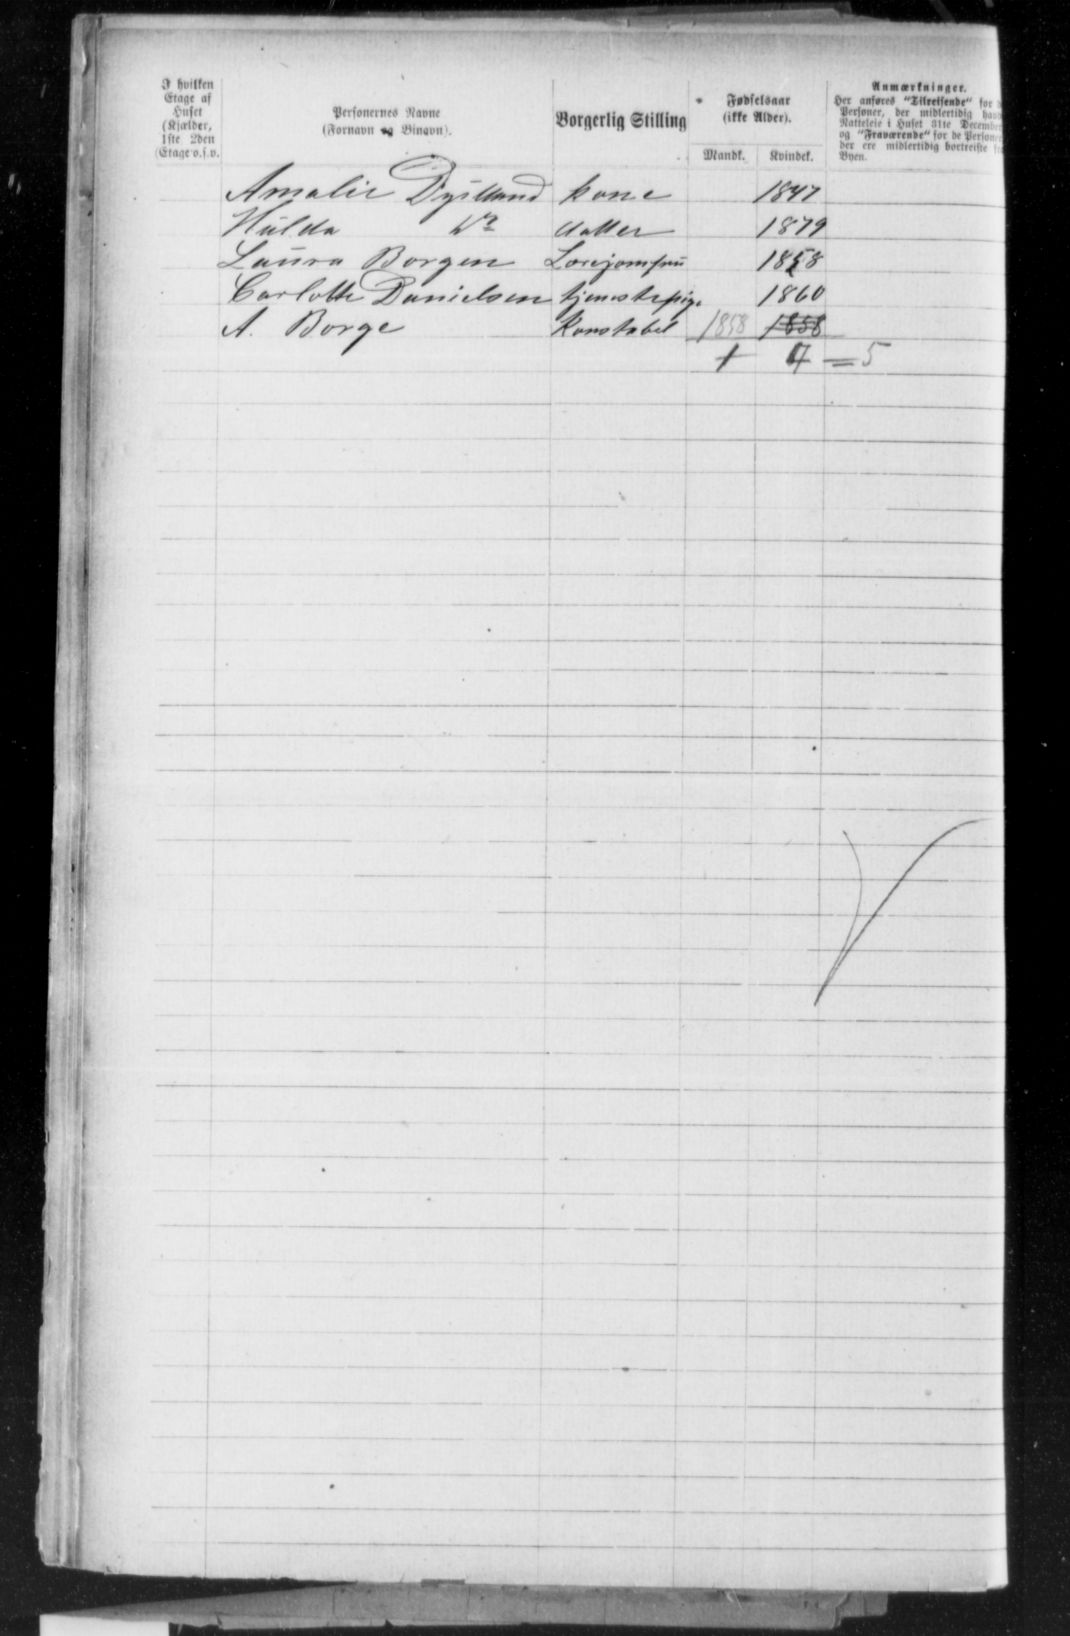 I hvilken
Etage af
Huset
(Kjælder,
1ste 2den
Etage o.s.v.
Personernes Navne
(Fornavn og Binavn).
Borgerlig Stilling
Fødselsaar
(ikke Alder).
Mandk. Kvindek.
Anmærkninger.
Her anføres "Tilreisende" for
Personer, der midlertidig
Natteleie i Huset 31te December
og "Fraværende" for de
der ere midlertidig bortreiste
Byen.
Amalie kone 1847
Hulda Do datter 1879
Laura Borgen Lærejomfru 1858
Carlotte Danielsen tjenestepige 1860
A. Borge Konstabel 1858 1858
1 4 = 5